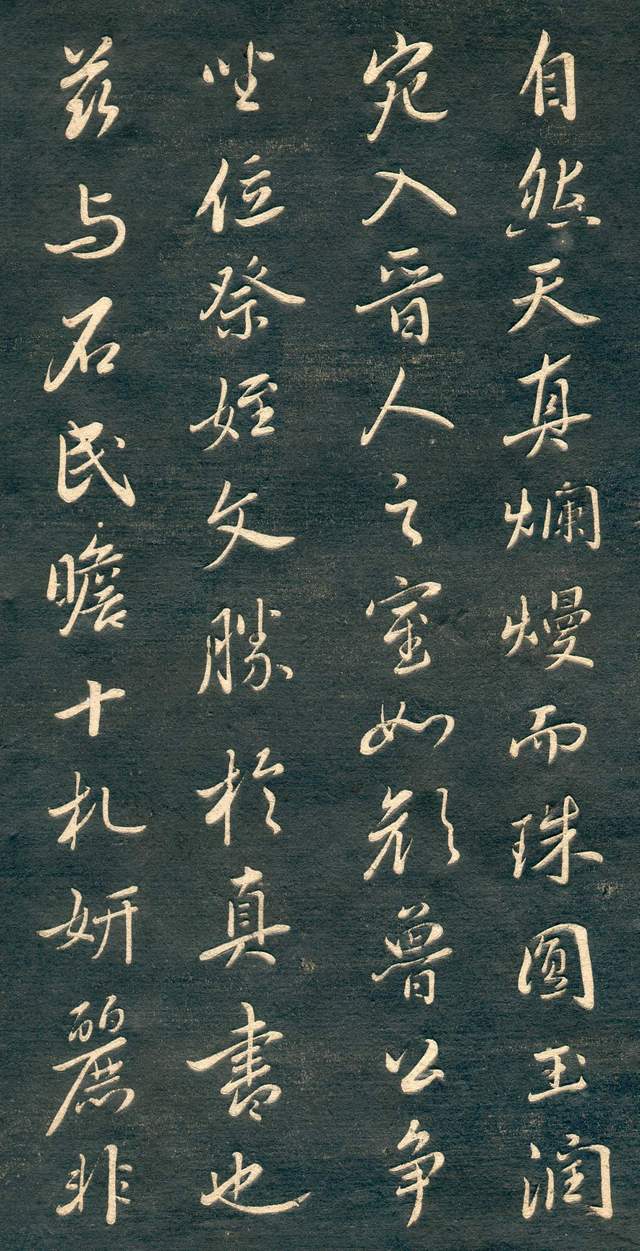 自然天真爛熳而珠圓玉润
宛入晋人之室如顔魯公争
坐位祭姪文勝於真書也
兹与石民瞻十札妍麗非